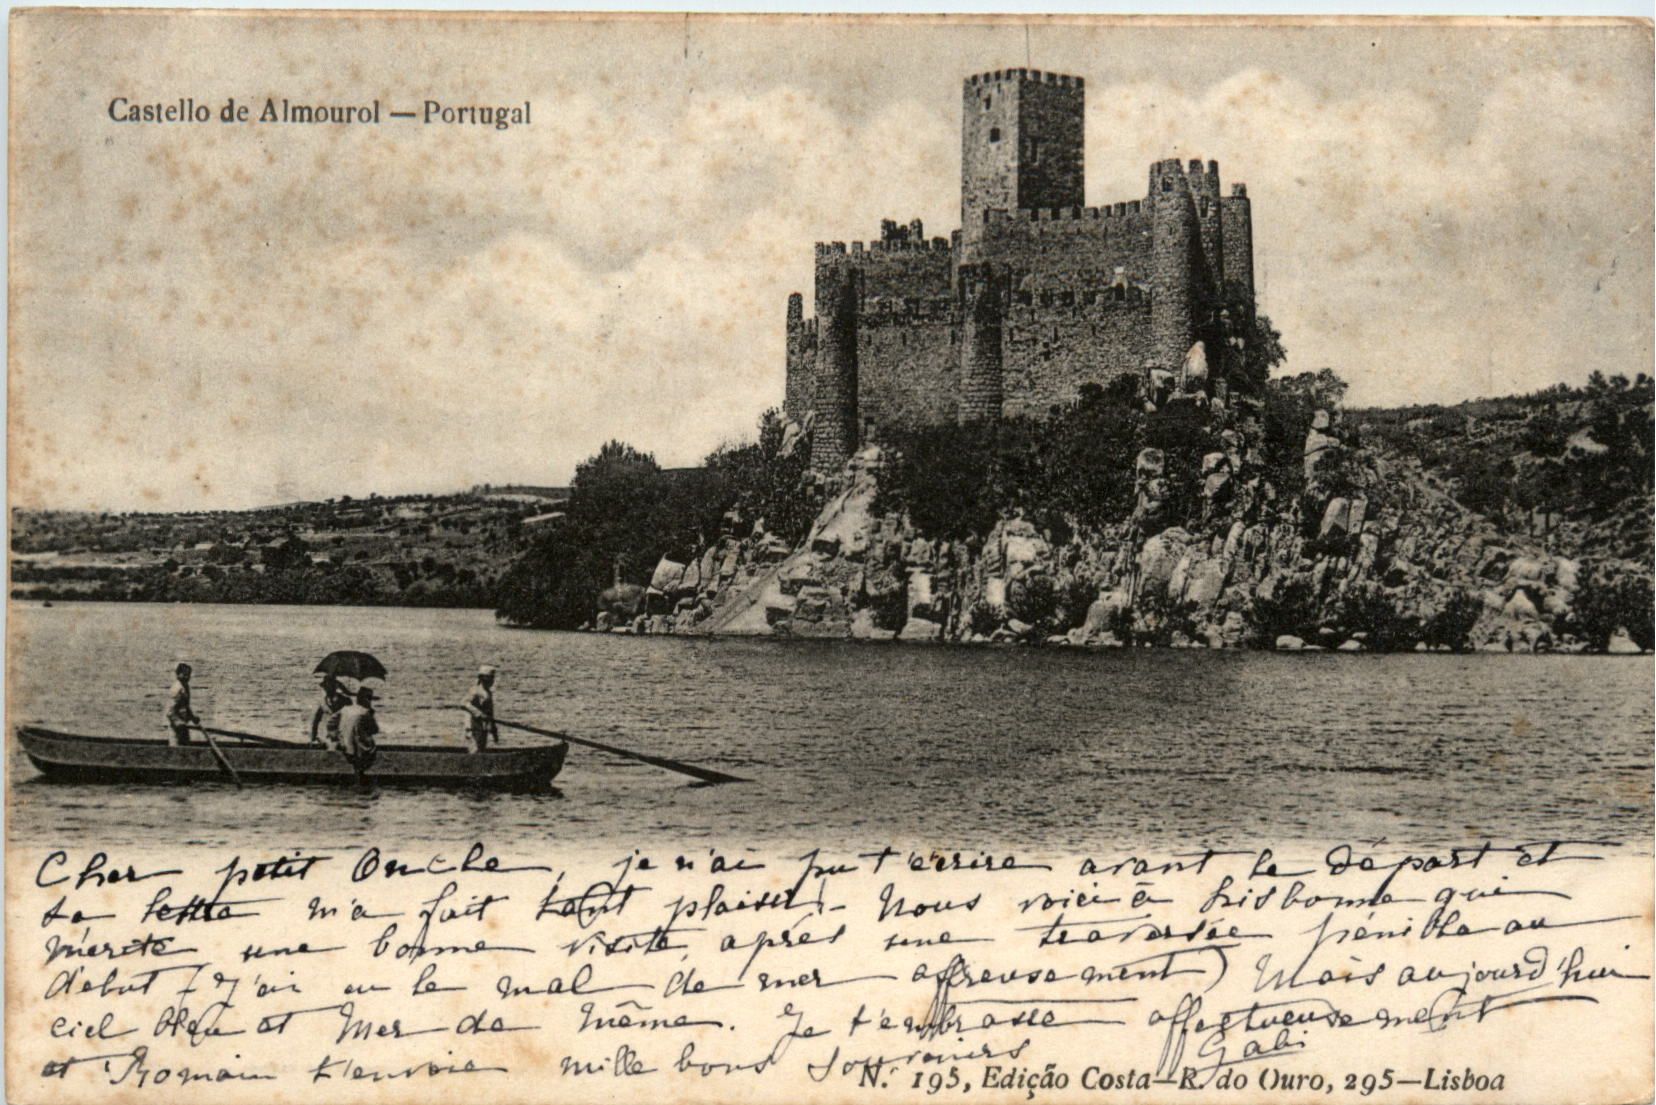 Castello de Almourol — Portugal
Cher petit Oncle, je n'ai pu t'écrire avant le départ et
ta lettre m'a fait tant plaisir! - Nous voici à Lisbonne qui
mérite une bonne visite, après une traversée pénible au
début (j'ai eu le mal de mer affreusement) Mais aujourd'hui
ciel bleu et Mer de même. Je t'embrasse affectueusement
Gabi
et Romain t'envoie mille bons souvenirs
N.º 195, Edição Costa—R. do Ouro, 295—Lisboa